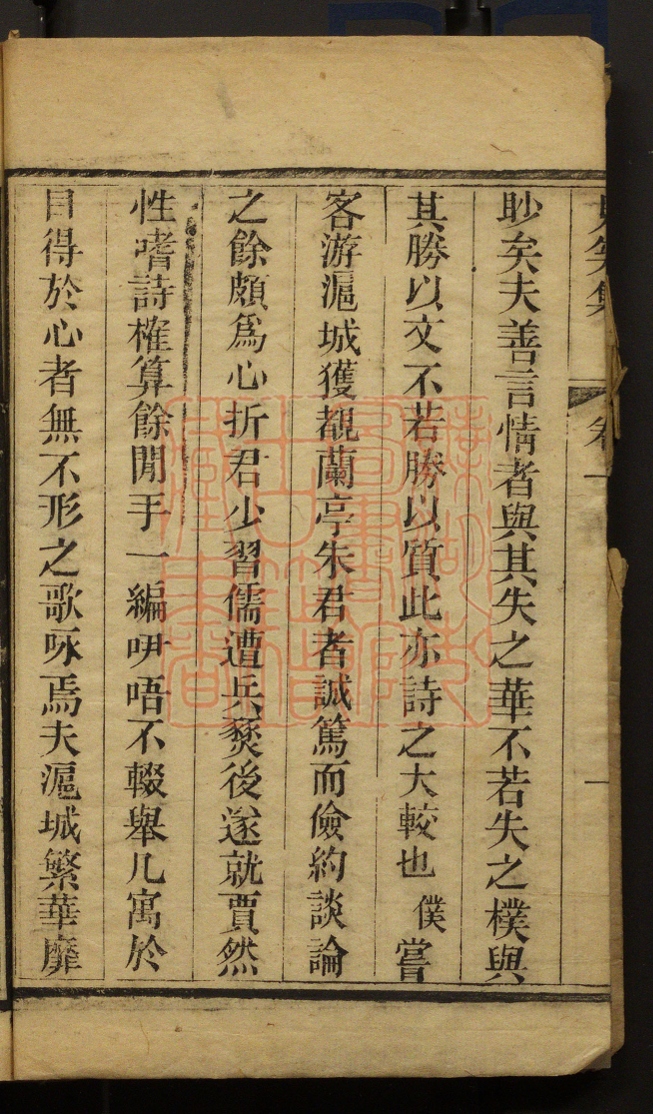 眇矣夫善言情者與其失之華不若失之樸與
其勝以文不若勝以質此亦詩之大較也僕嘗
客游滬城獲覩蘭亭朱君者誠篤而儉約談論
之餘頗爲心折君少習儒遭兵燹後遂就賈然
性嗜詩榷算餘閒手一編吚唔不輟舉凡寓於
目得於心者無不形之歌咏焉夫滬城繁華靡